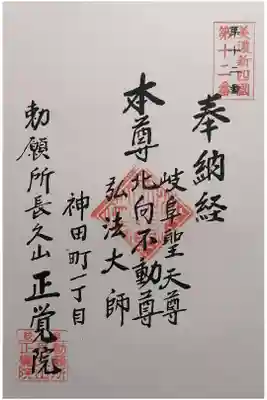 美濃新四國
第十二番
奉納経
岐阜聖天尊
本尊 北向不動尊
弘法大師
神田町一丁目
勅願所長久山 正覚院